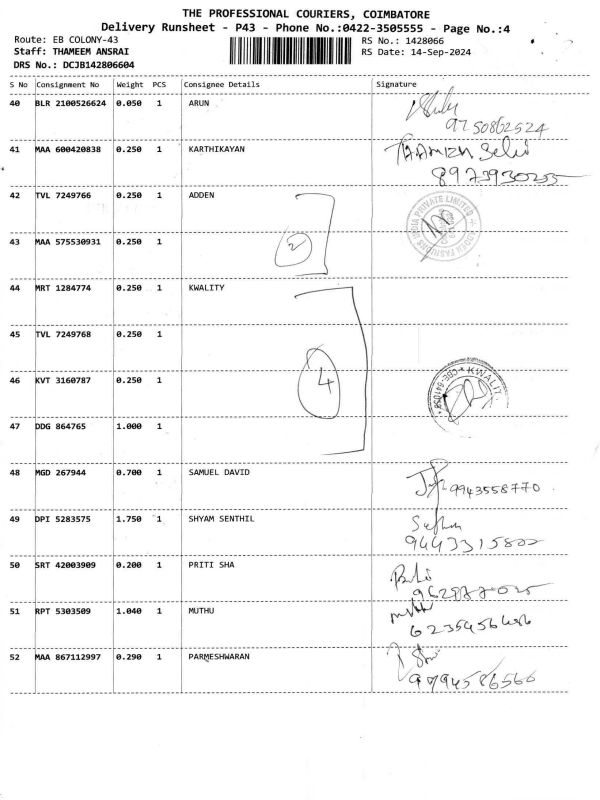 THE PROFESSIONAL COURIERS, COIMBATORE
Delivery Runsheet - P43 - Phone No.:0422-3505555 - Page No.:4
Route: EB COLONY-43 RS No.: 1428066
Staff: THAMEEM ANSRAI RS Date: 14-Sep-2024
DRS No.: DCJB142806604
S No Consignment No Weight PCS Consignee Details Signature
40 BLR 2100526624 0.050 1 ARUN
9750862524
41 MAA 600420838 0.250 1 KARTHIKAYAN
8973930255
42 TVL 7249766 0.250 1 ADDEN
INDIA PRIVATE LIMITED
2
43 MAA 575530931 0.250 1
44 MRT 1284774 0.250 1 KWALITY
45 TVL 7249768 0.250 1
46 KVT 3160787 0.250 1
4
KWALIT
47 DDG 864765 1.000 1
48 MGD 267944 0.700 1 SAMUEL DAVID
9943558770
49 DPI 5283575 1.750 1 SHYAM SENTHIL
9443315802
50 SRT 42003909 0.200 1 PRITI SHA
51 RPT 5303509 1.040 1 MUTHU
52 MAA 867112997 0.290 1 PARMESHWARAN